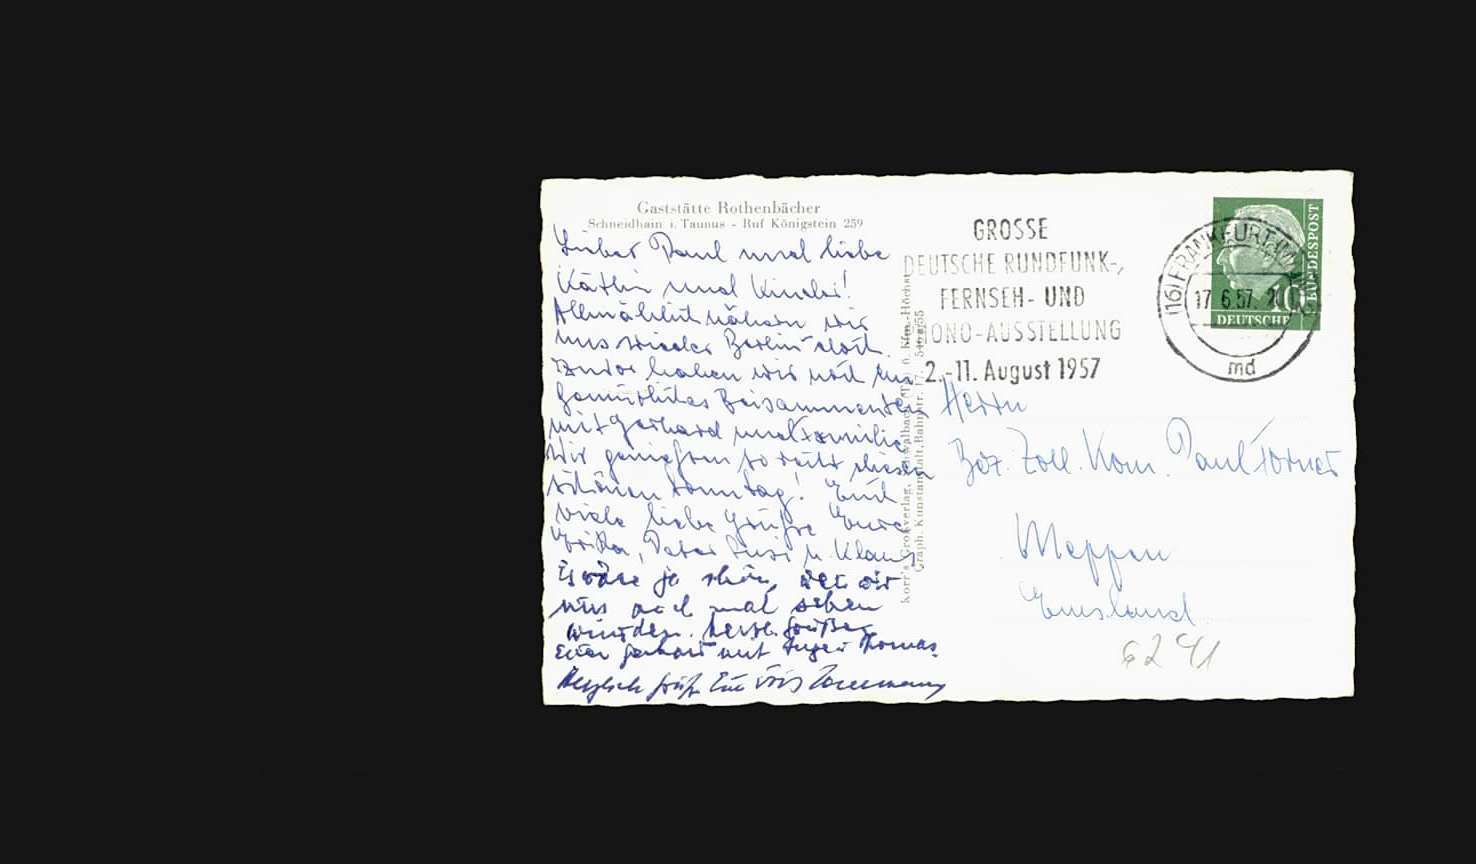 Gaststätte Rothenbächer
Schneidhain i. Taunus - Ruf Königstein 259
Lieber Paul und liebe
Käthi und Kinder!
Allmählich nähern wir
uns wieder Berlin
haben wir noch ein
gemütliches Beisammensein
mit Gerhard und Familie
Wir genießen so recht diesen
schönen Sonntag! Euch
viele liebe Grüße Eure
Erika, Peter Susi u. Klaus
Es wäre ja schön, wir
uns auch mal sehen
würden. Herzl. Grüße
Euer Gerhard mit Thomas.
GROSSE
DEUTSCHE RUNDFUNK-,
FERNSEH- UND
PHONO-AUSSTELLUNG
2.-11. August 1957
(16) FRANKFURT (MAIN)
17.6.57
md
10
DEUTSCHE
BUNDESPOST
Herrn
Bez. Zoll. Kom. Paul
Meppen
Emsland
6241